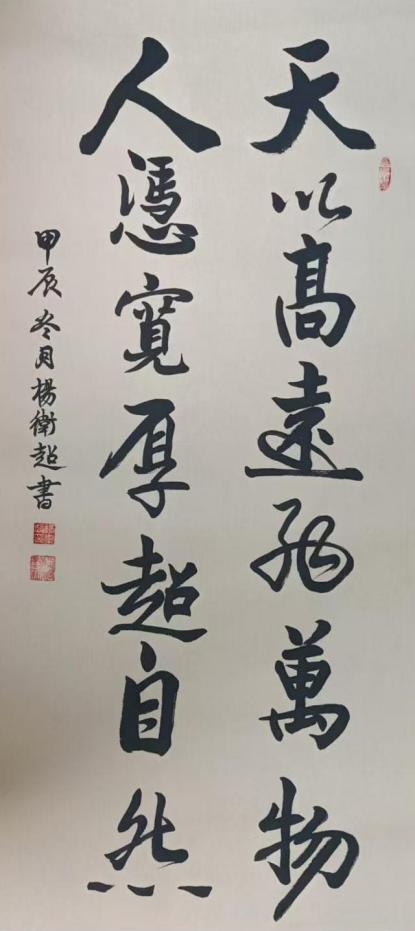 天以髙遠萬物
人憑寬厚超自然
甲辰冬月楊衛超書